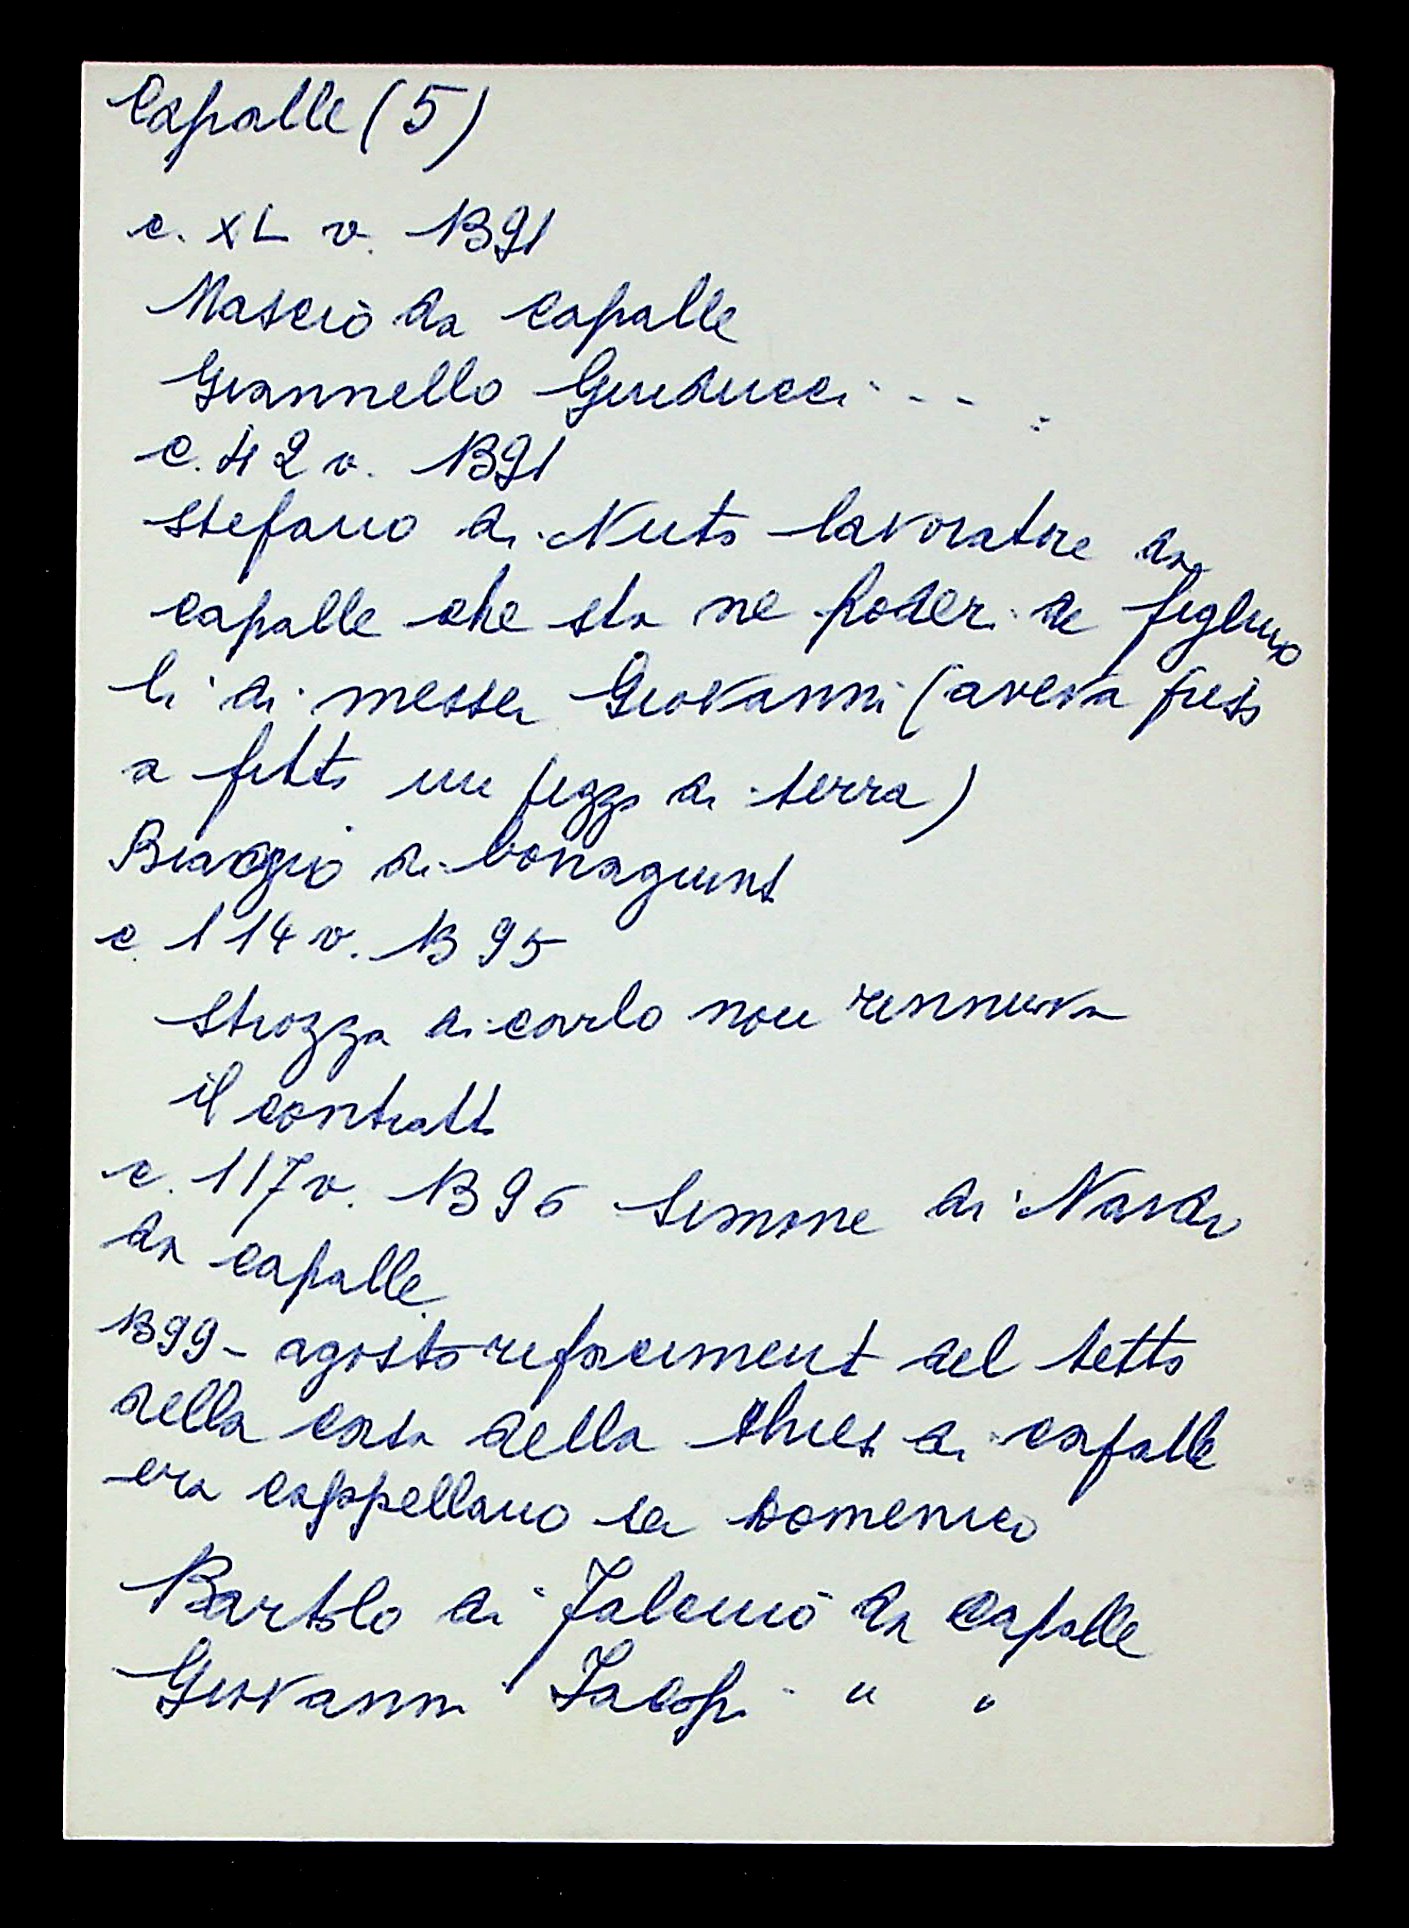 Capalle (5)
c. XL v. 1391
Mascio da Capalle
Giannello Guiducci - - - :
c. 42 v. 1391
Stefano di Nuto lavoratore da
Capalle che sta ne poderi de figliuo
li di messer Giovanni (aveva preso
a fitto un pezzo di terra)
Biagio di bonagiunt
c. 114 v. 1395
Strozza di Carlo non rinnova
il contratto
c. 117 v. 1396 Simone di Nardo
da Capalle
1399 - agosto rifaciment del tetto
della casa della di Capalle
era cappellano ser Domenico
Bartolo di da Capalle
Giovanni Iacopi " "